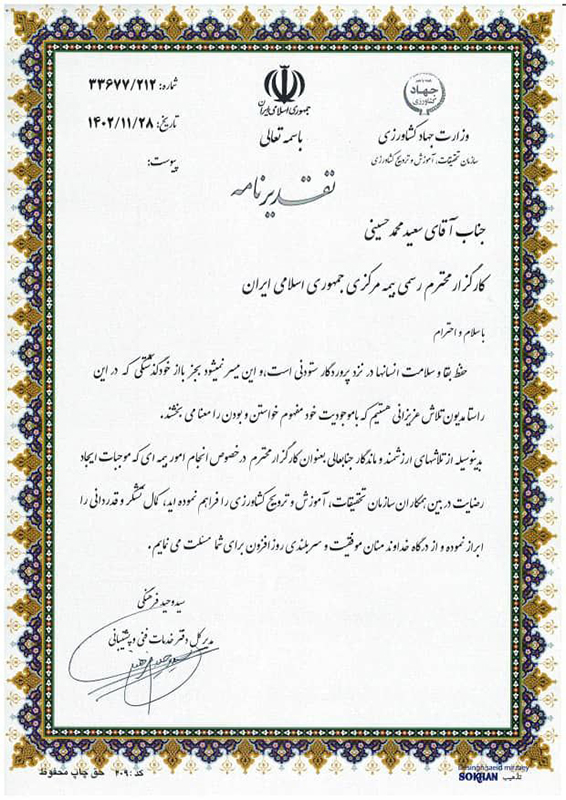 شماره: ۳۳۶۷۷/۲۱۲
تاریخ: ۱۴۰۲/۱۱/۲۸
پیوست:
جمهوری اسلامی ایران
باسمه تعالی
جهاد
کشاورزی
وزارت جهاد کشاورزی
سازمان تحقیقات، آموزش و ترویج کشاورزی
تقدیرنامه
جناب آقای سعید محمدحسینی
کارگزار محترم رسمی بیمه مرکزی جمهوری اسلامی ایران
با سلام و احترام
حفظ بقا و سلامت انسانها در نزد پروردگار ستودنی است، و این میسر نمیشود بجز با از خودگذشتگی که در این
راستا مدیون تلاش عزیزانی هستیم که با موجودیت خود مفهوم خواستن و بودن را معنا می بخشند.
بدینوسیله از تلاشهای ارزشمند و ماندگار جنابعالی بعنوان کارگزار محترم در خصوص انجام امور بیمه ای که موجبات ایجاد
رضایت در بین همکاران سازمان تحقیقات، آموزش و ترویج کشاورزی را فراهم نموده اید، کمال تشکر و قدردانی را
ابراز نموده و از درگاه خداوند منان موفقیت و سربلندی روزافزون برای شما مسئلت می نمایم.
سید وحید فرهنگی
مدیر کل دفتر خدمات فنی و پشتیبانی
کد: ۲۰۹ حق چاپ محفوظ
SOKHAN تذهیب